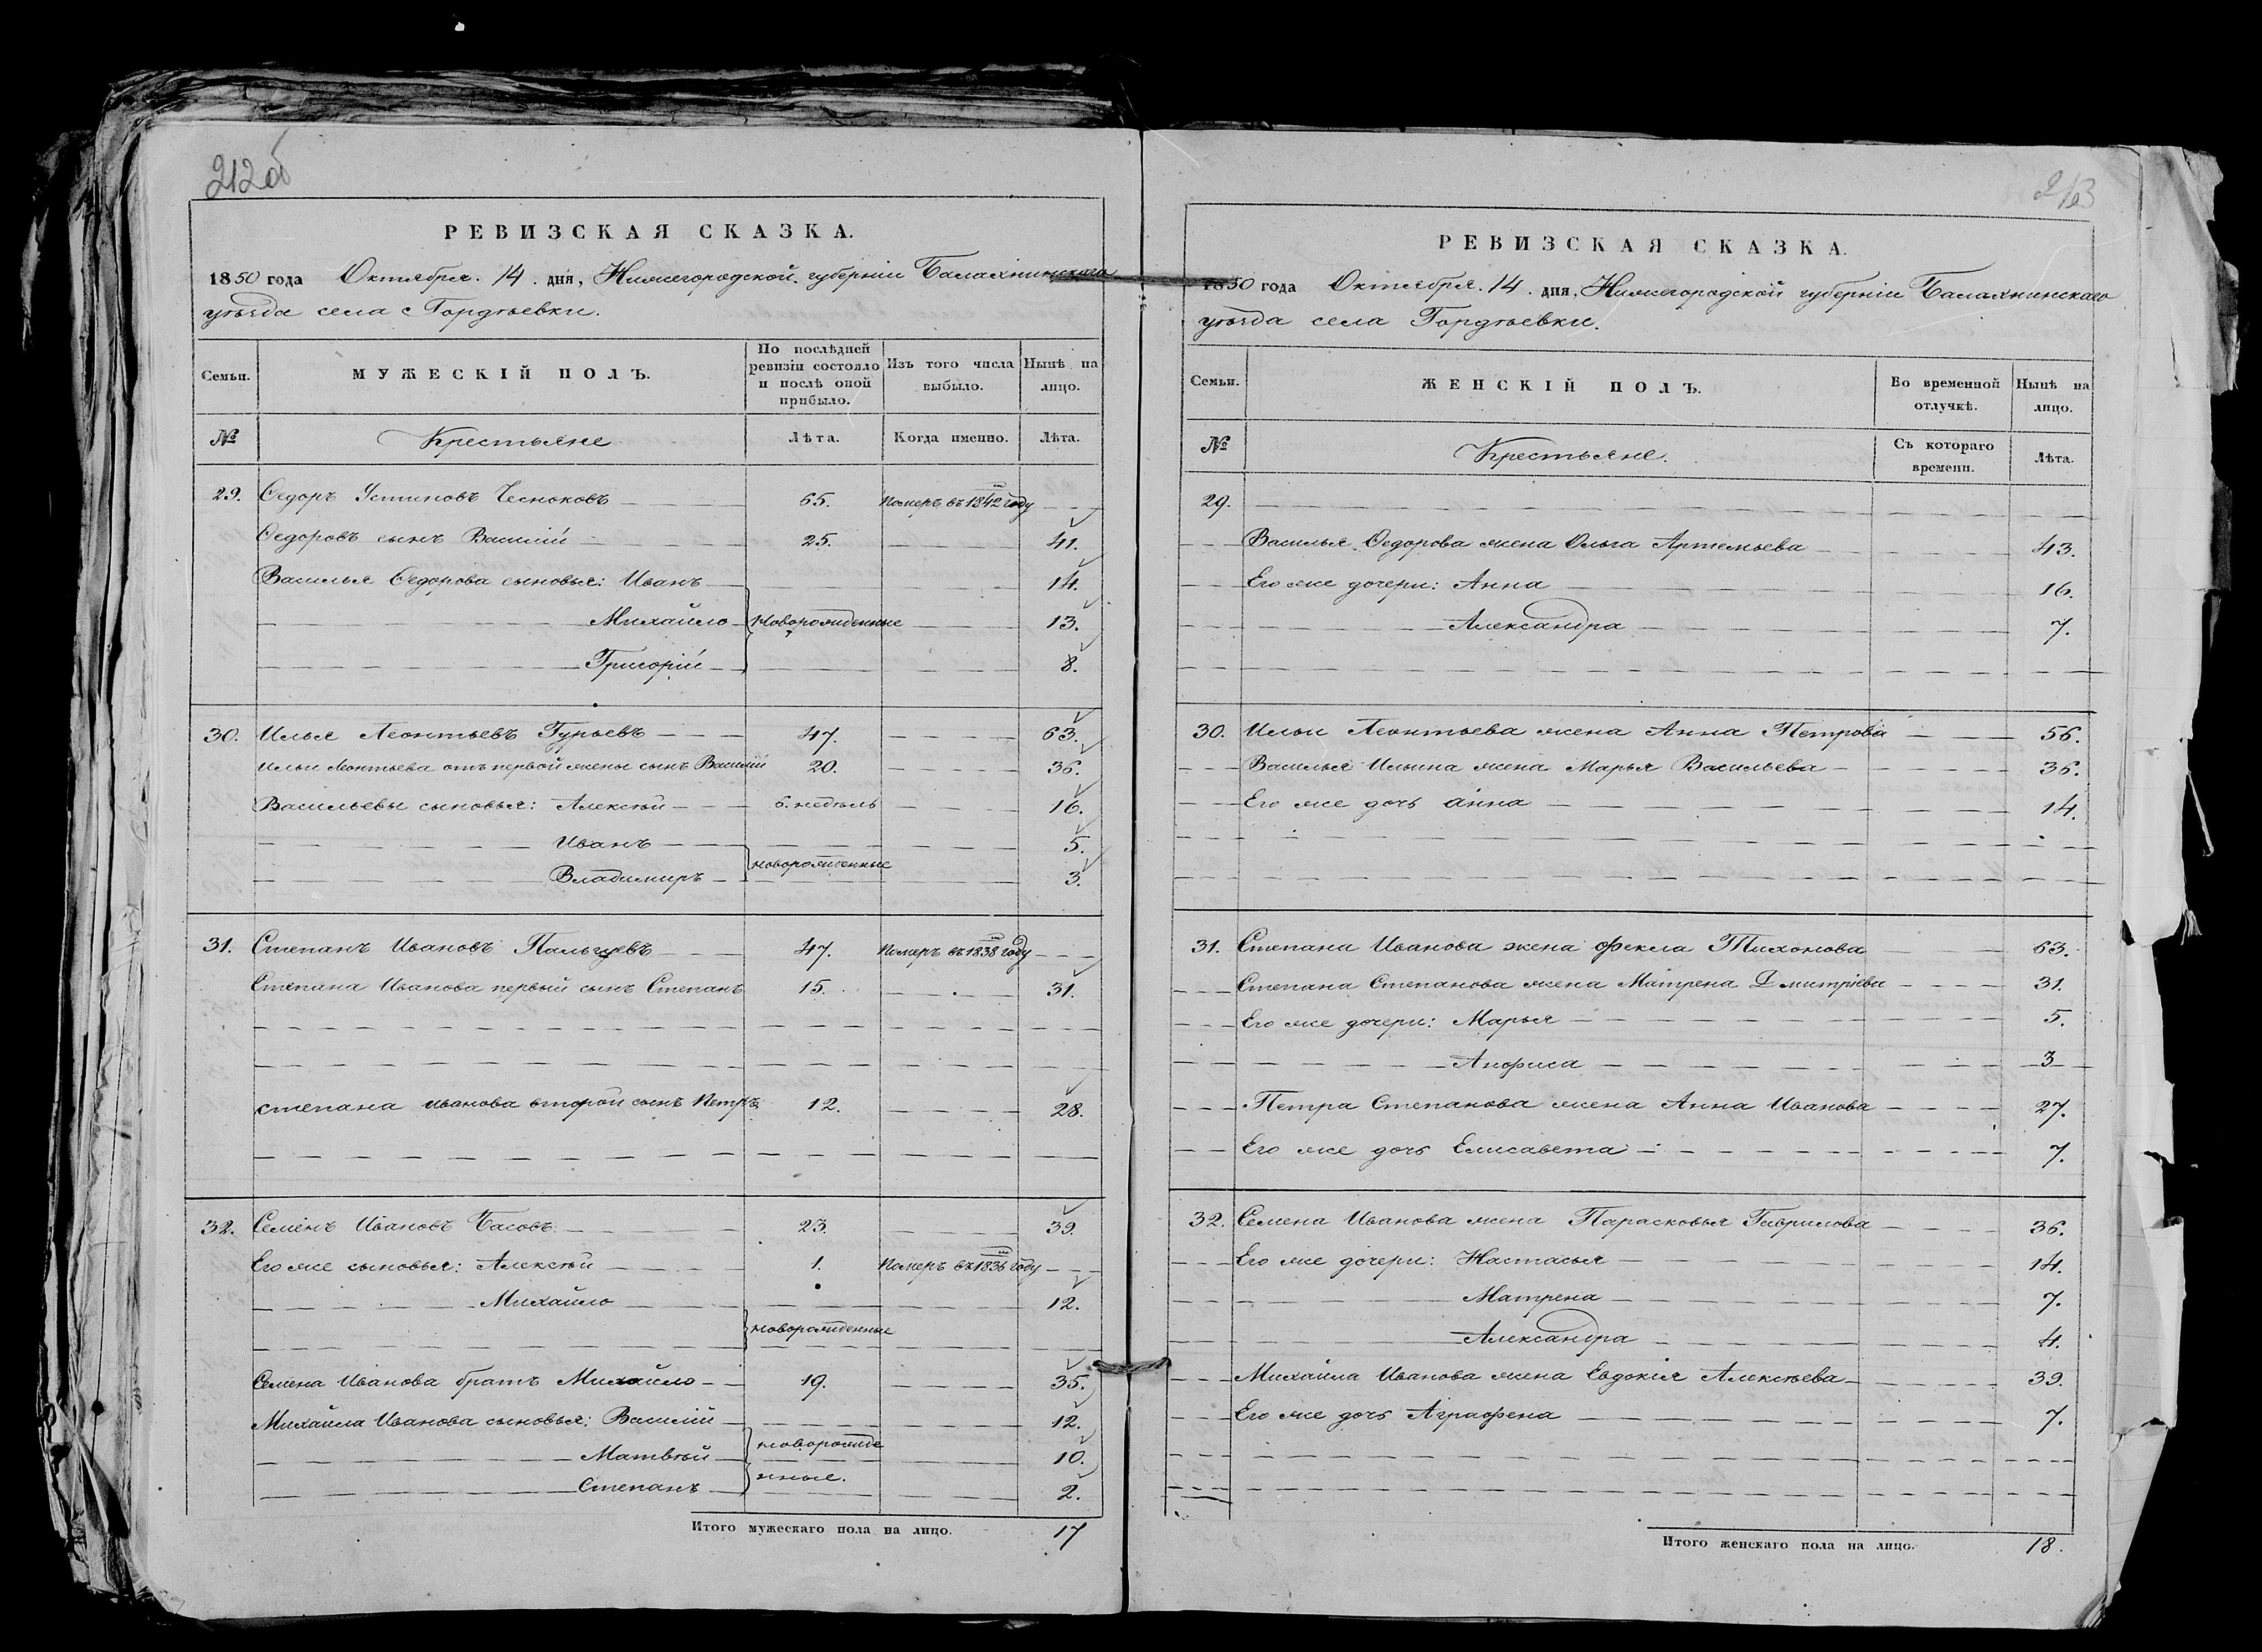 212об
РЕВИЗСКАЯ СКАЗКА.
1850 года Октября. 14. дня, Нижегородской губерніи Балахнинскаго
уѣзда села Гордѣевки.
Семьи. МУЖЕСКІЙ ПОЛЪ. По послѣдней ревизіи состояло и послѣ оной прибыло. Изъ того числа выбыло. Нынѣ на лицо.
№ Крестьяне Лѣта. Когда именно. Лѣта.
29. Федоръ Устиновъ Чесноковъ 65. Померъ въ 1842 году
Федоровъ сынъ Василій 25. 41.
Василья Федорова сыновья: Иванъ 14.
Михайло новорожденные 13.
Григорій 8.
30. Илья Леонтьевъ Гурьевъ 47. 63.
Ильи Леонтьева отъ первой жены сынъ Василій 20. 36.
Васильевы сыновья: Алексѣй 6. недѣль 16.
Иванъ 5.
новорожденные
Владимиръ 3.
31. Степанъ Ивановъ Пальцевъ 47. Померъ въ 1838 году
Степана Иванова первый сынъ Степанъ 15. 31.
Степана Иванова второй сынъ Петръ 12. 28.
32. Семенъ Ивановъ Басовъ 23. 39.
Его же сыновья: Алексѣй 1. Померъ въ 1836 году
Михайло 12.
новорожденные
Семена Иванова братъ Михайло 19. 35.
Михайла Иванова сыновья: Василій 12.
новорожде
Матвѣй 10.
нные.
Степанъ 2.
Итого мужескаго пола на лицо. 17
213
РЕВИЗСКАЯ СКАЗКА.
1850 года Октября. 14. дня, Нижегородской губерніи Балахнинскаго
уѣзда села Гордѣевки.
Семьи. ЖЕНСКІЙ ПОЛЪ. Во временной отлучкѣ. Нынѣ на лицо.
№ Крестьяне. Съ котораго времени. Лѣта.
29.
Василья Федорова жена Ольга Артемьева 43.
Его же дочери: Анна 16.
Александра 7.
30. Ильи Леонтьева жена Анна Петрова 56.
Василья Ильина жена Марья Васильева 36.
Его же дочь анна 14.
31. Степана Иванова жена Фекла Тихонова 63.
Степана Степанова жена Матрена Дмитріева 31.
Его же дочери: Марья 5.
Анфиса 3
Петра Степанова жена Анна Иванова 27.
Его же дочь Елисавета 7.
32. Семена Иванова жена Парасковья Гаврилова 36.
Его же дочери: Настасья 14.
Матрена 7.
Александра 4.
Михайла Иванова жена Евдокія Алексѣева 39.
Его же дочь Аграфена 7.
Итого женскаго пола на лицо. 18.